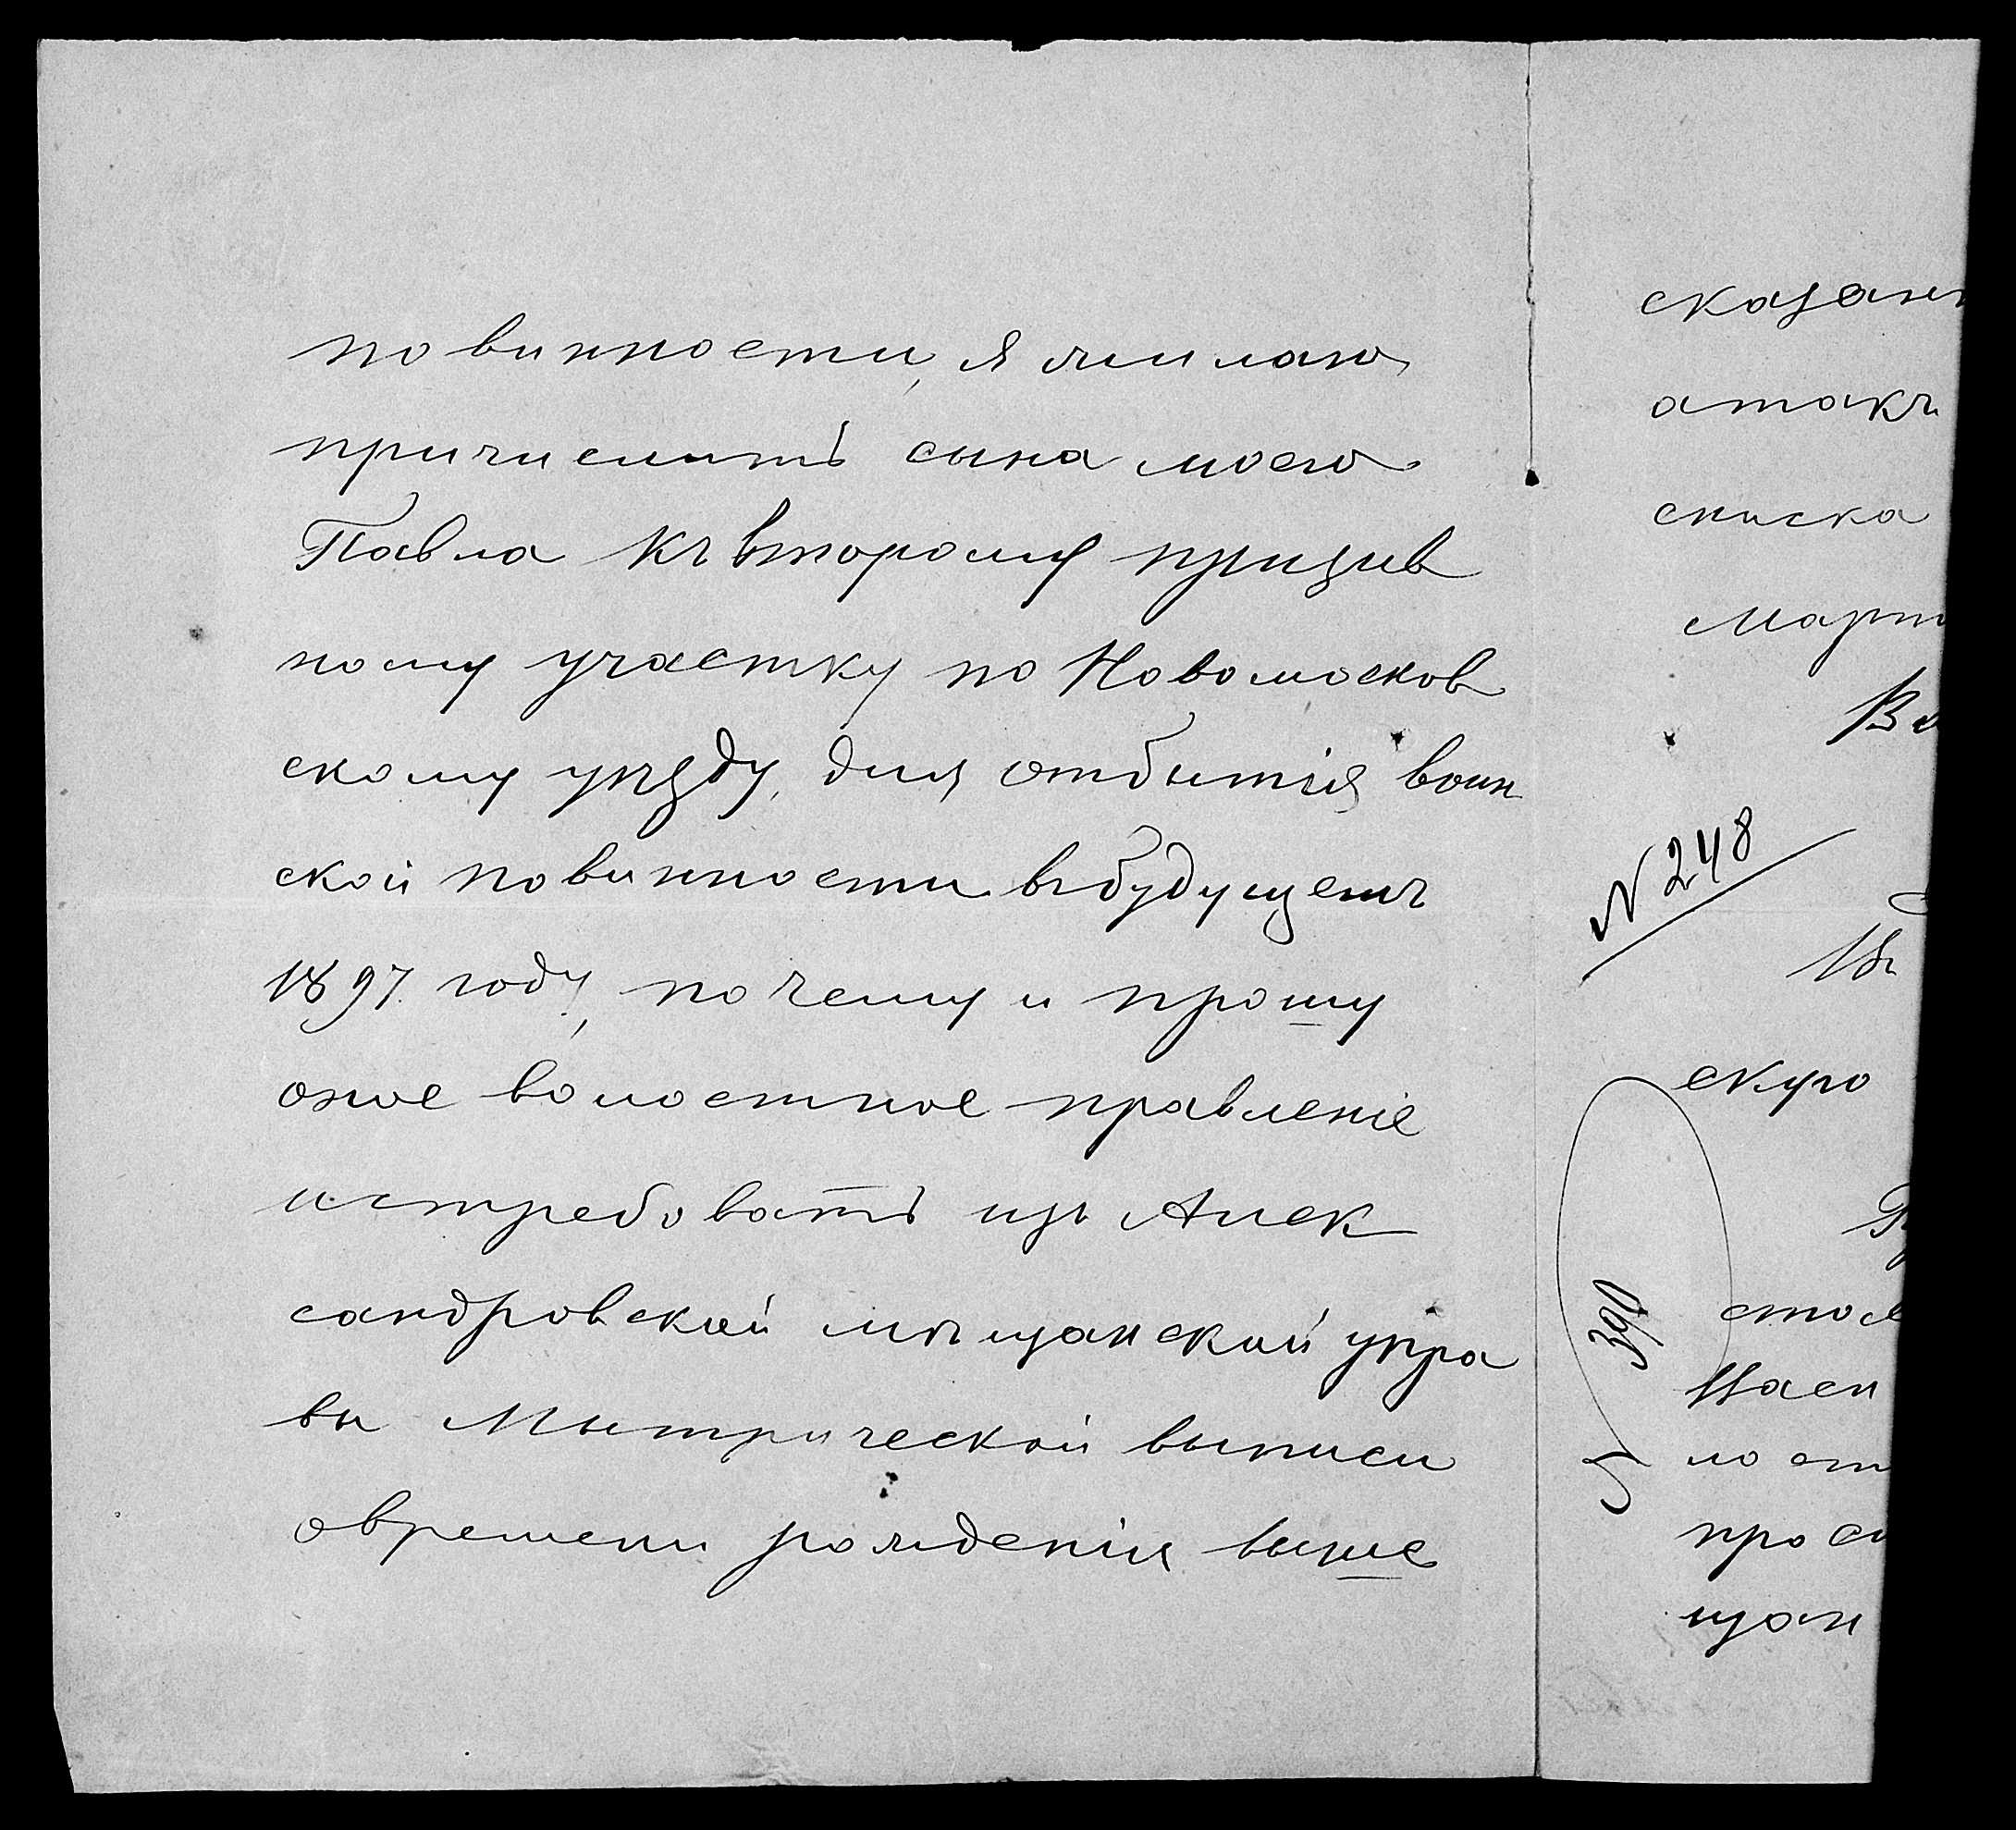 повинности, я жилаю
причислить сына моего
Павла къ второму призыв
ному участку по Новомосков
скому уѣзду, для отбытія воин
ской повинности въ будущемъ
1897 году, почему и прошу
оное волостное правленіе
истребовать изъ Алек
сандровской мѣщанской упра
вы Мытрической выписи
о времени рожденія выше
сказан
а такъ
списка
Март
№ 248
скую
390
стов
лост
прос
щан